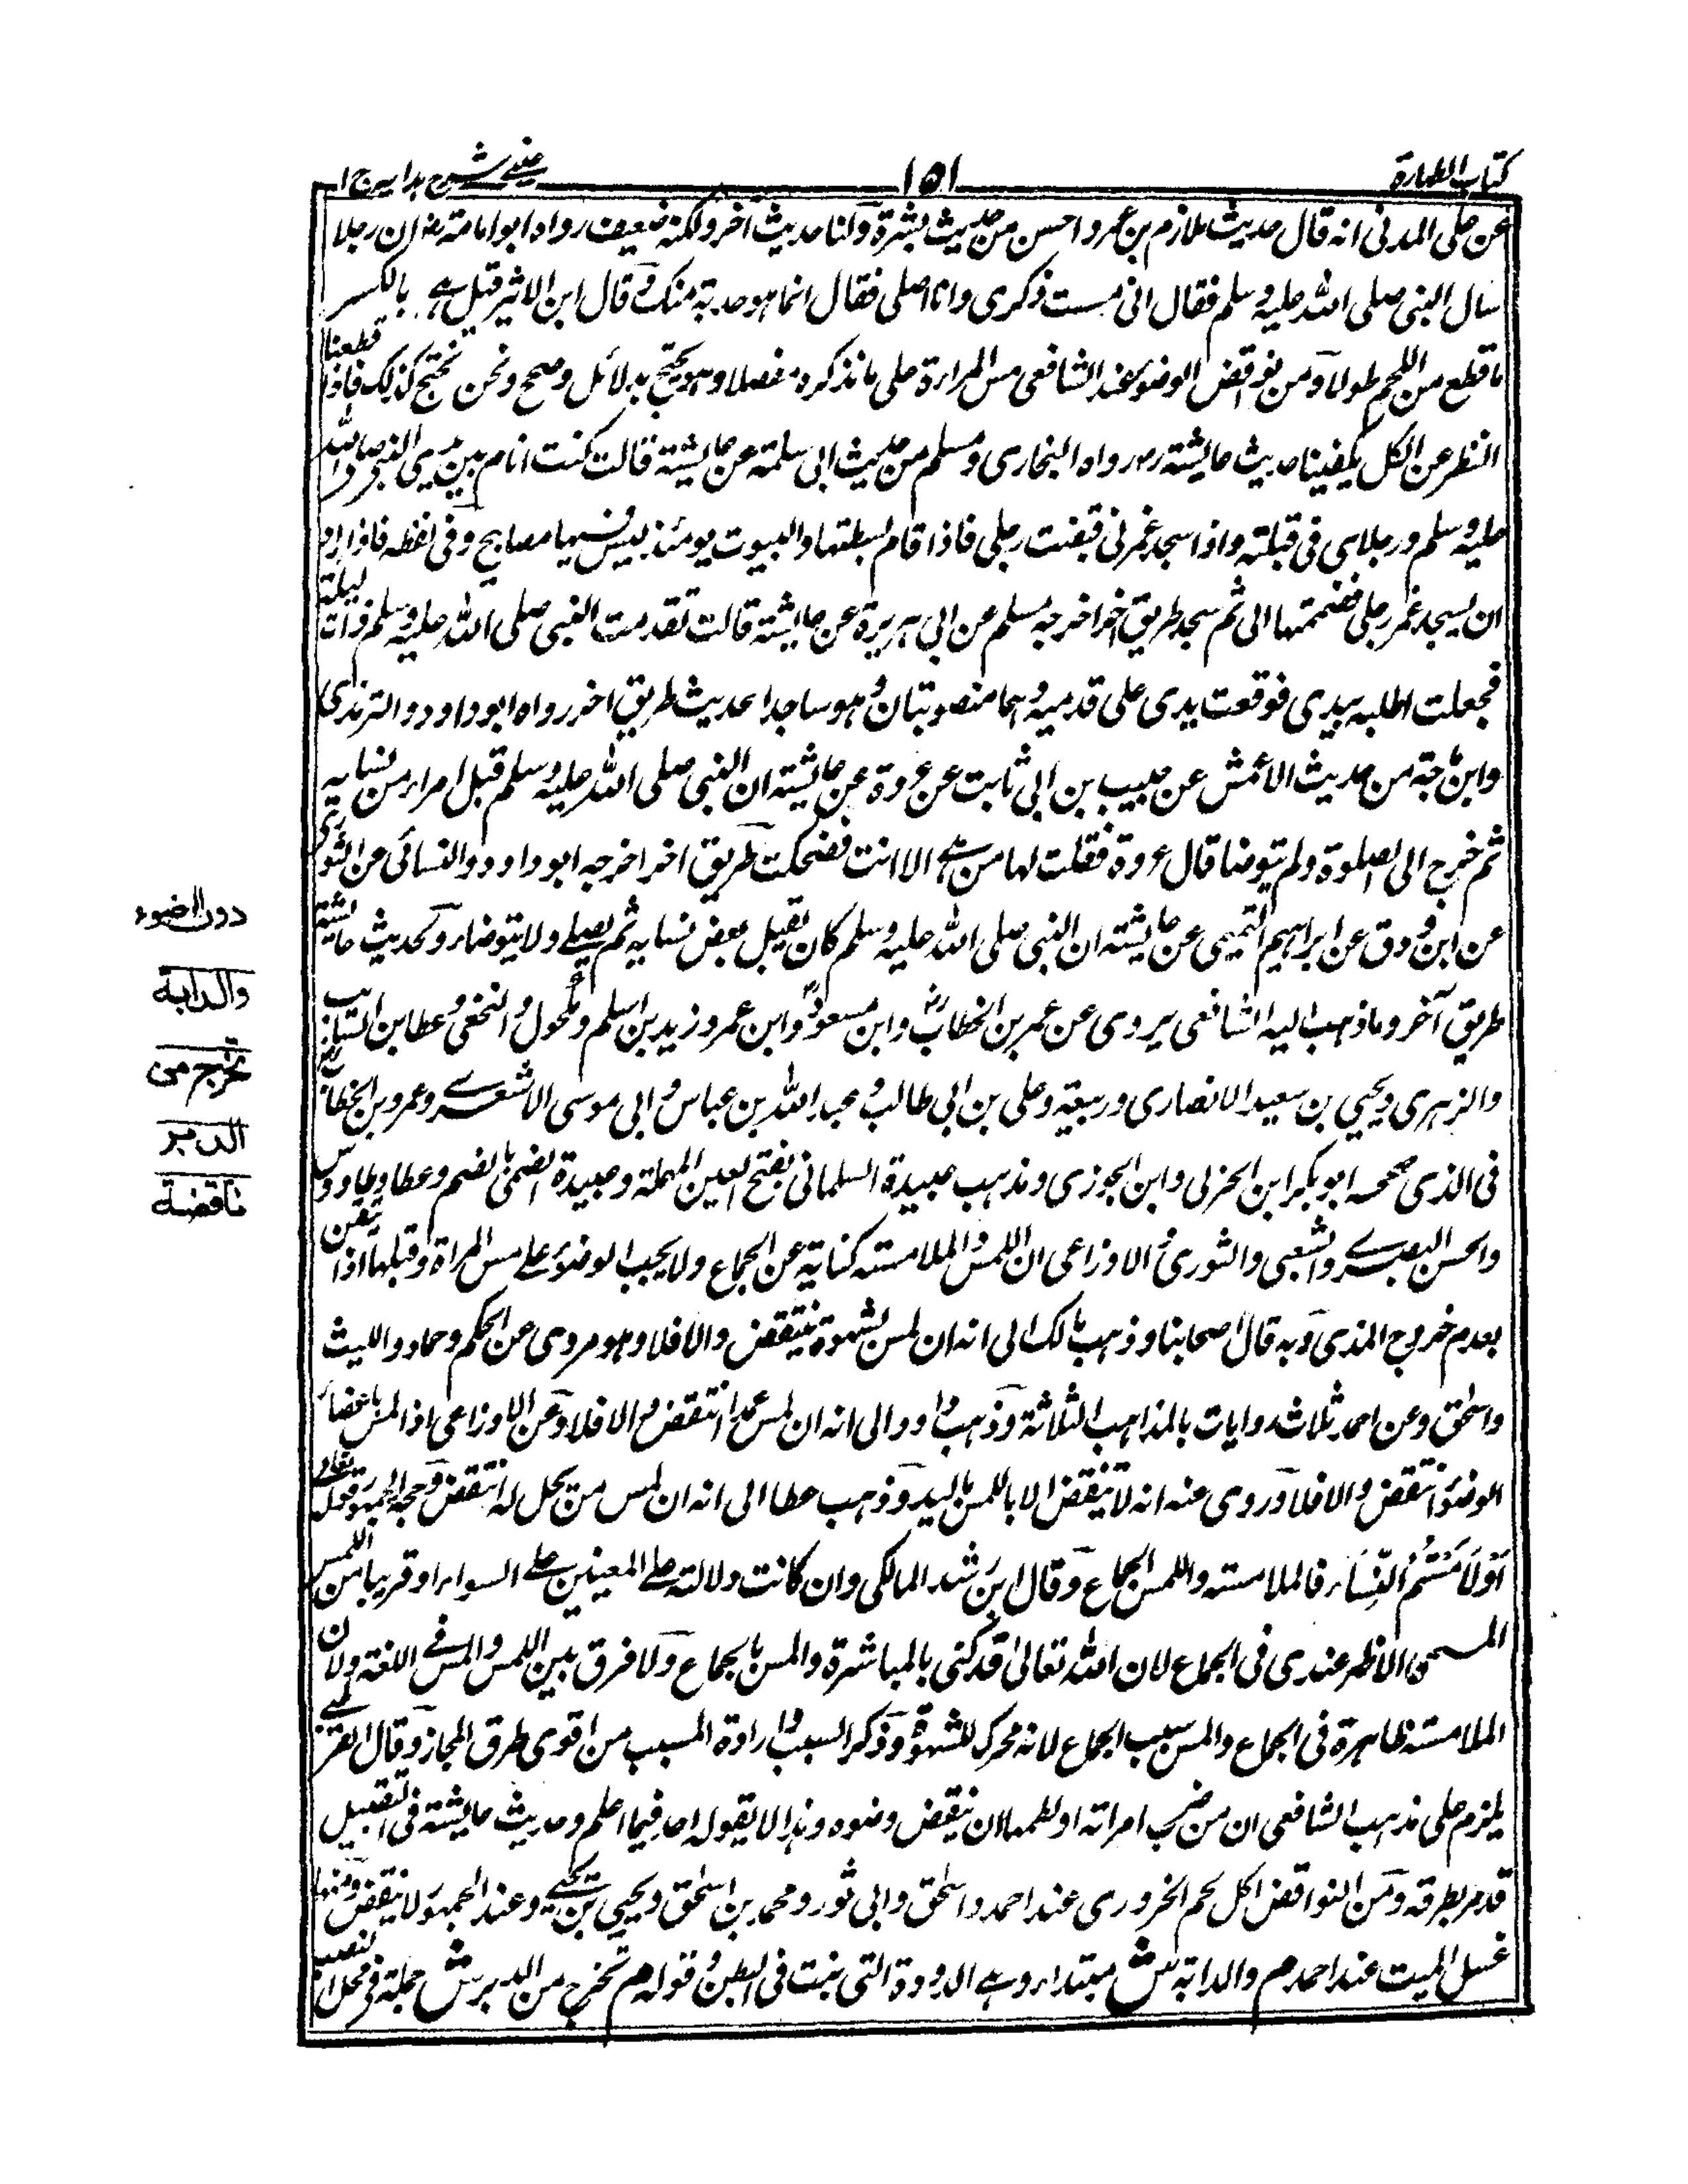 كتاب الطهارة
١٥١
عيني شرح هدايه ج ١
عن علي المدني انه قال حديث ملازم بن عمرو احسن من حديث بشرة ولنا حديث آخر ولكنه ضعيف رواه ابو امامة رض ان رجلا
سال النبي صلى الله عليه وسلم فقال اني مست ذكري وانا اصلي فقال انما هو حدية منك وقال ابن الاثير قيل هي بالكسر
ما قطع من اللحم طولا ومن نواقض الوضوء عند الشافعي مس المراة على ما نذكره مفصلا وهو يحتج بدلائل وصحح ونحن نحتج كذلك فاذا قطعنا
النظر عن الكل يكفينا حديث عايشة رض رواه البخاري ومسلم من حديث ابي سلمة عن عايشة قالت كنت انام بين يدي النبي صلى الله
عليه وسلم ورجلاي في قبلته واذا سجد غمزني فقبضت رجلي فاذا قام بسطتها والبيوت يومئذ ليس فيها مصابيح وفي لفظه فاذا اراد
ان يسجد غمز رجلي فضممتها الي ثم سجد طريق اخر اخرجه مسلم عن ابي هريرة عن عايشة قالت تقدمت النبي صلى الله عليه وسلم ذات ليلة
فجعلت اطلبه بيدي فوقعت يدي على قدميه وهما منصوبتان وهو ساجد الحديث طريق اخر رواه ابو داود والترمذي
وابن ماجة من حديث الاعمش عن حبيب بن ابي ثابت عن عروة عن عايشة ان النبي صلى الله عليه وسلم قبل امراء من نسايه
ثم خرج الى الصلوة ولم يتوضا قال عروة فقلت لها من هي الا انت فضحكت طريق اخر اخرجه ابو داود والنسائي عن الثوري
عن ابن روق عن ابراهيم التيمي عن عايشة ان النبي صلى الله عليه وسلم كان يقبل بعض نسايه ثم يصلي ولا يتوضا ولحديث عايشة
طريق آخر وما ذهب اليه الشافعي يروى عن عمر بن الخطاب وابن مسعود وابن عمر وزيد بن اسلم ومكحول والنخعي وعطا بن السايب
والزهري ويحيى بن سعيد الانصاري وربيعة وعلي بن ابي طالب وعبد الله بن عباس وابي موسى الاشعري وعمرو بن الخطاب
في الذي صححه ابو بكر ابن العربي وابن الجوزي ومذهب عبيدة السلماني بفتح العين المهملة وعبيدة الضبي بالضم وعطا وطاووس
والحسن البصري والشعبي والثوري والاوزاعي ان اللمس والملامسة كناية عن الجماع ولا يجب الوضوء على مس المراة وقبلها اذا تيقن
بعدم خروج المذي وبه قال اصحابنا وذهب مالك الى انه ان لمس بشهوة ينتقض والا فلا وهو مروي عن الحكم وحماد والليث
واسحق وعن احمد ثلاث روايات بالمذاهب الثلاثة وذهب داود الى انه ان لمس عمدا انتقض والا فلا وعن الاوزاعي اذا لمس باعضاء
الوضوء انتقض والا فلا وروي عنه انه لا ينتقض الا باللمس باليد وذهب عطا الى انه ان لمس من يحل له انتقض وحجة الجمهور قوله تعالى
اَوْ لَامَسْتُمُ النِّسَاءَ فالملامسة واللمس الجماع وقال ابن رشد المالكي وان كانت دلالته على المعنيين على السواء او قريبا من اللمس
المسمى الاظهر عندي في الجماع لان الله تعالى قد كنى بالمباشرة والمس بالجماع ولا فرق بين اللمس والمس في اللغة ولان
الملامسة ظاهرة في الجماع والمس سبب الجماع لانه محرك للشهوة وذكر السبب وارادة المسبب من اقوى طرق المجاز وقال القرطبي
يلزم على مذهب الشافعي ان من ضرب امراته او لطمها ان ينقض وضوه وهذا لا يقوله احد فيما اعلم وحديث عايشة في التقبيل
قد مر بطرقه ومن النواقض اكل لحم الجزور عند احمد واسحق وابي ثور ومحمد بن اسحق ويحيى بن يحيى وعند الجمهور لا ينقض ومنها
غسل الميت عند احمد م والدابة ش مبتدا وهي الدودة التي نبتت في البطن وقوله م تخرج من الدبر ش جملة في محل النصب
دون الوضوء
والدابة
تخرج من
الدبر
ناقضة